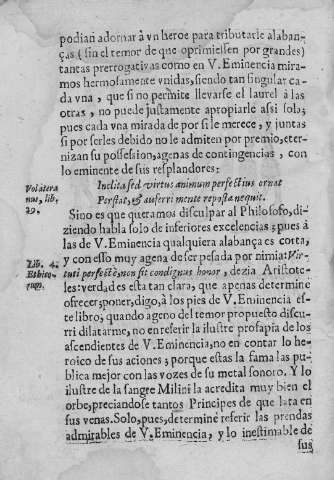 podian adornar à vn heroe para tributarle alaban-
ças (sin el temor de que oprimiessen por grandes)
tantas prerrogativas como en V. Eminencia mira-
mos hermosamente vnidas, siendo tan singular ca-
da vna, que si no permite llevarse el laurel à las
otras, no puede justamente apropiarle assi sola;
pues cada vna mirada de por si le merece, y juntas
si por serles debido no le admiten por premio, eter-
nizan su possession, agenas de contingencias, con
lo eminente de sus resplandores:
Volaterra
nus, lib.
29.
Inclita sed virtus animum perfectius ornat
Perstat, & auferri mente reposta nequit.
Sino es que queramos disculpar al Philosofo, di-
ziendo habla solo de inferiores excelencias; pues à
las de V. Eminencia qualquiera alabança es corta,
y con esso muy agena de ser pesada por nimia: Vir-
Lib. 4.
Ethico-
rum.
tuti perfectæ, non sit condignus honor, dezia Aristote-
les: verdad es esta tan clara, que apenas determine
ofrecer; poner, digo, à los pies de V. Eminencia es-
te libro, quando ageno del temor propuesto discu-
rri dilatarme, no en referir la ilustre prosapia de los
ascendientes de V. Eminencia, no en contar lo he-
roico de sus aciones; porque estas la fama las pu-
blica mejor con las vozes de su metal sonoro. Y lo
ilustre de la sangre Milini la acredita muy bien el
orbe, preciandose tantos Principes de que lata en
sus venas. Solo, pues, determinè referir las prendas
admirables de V. Eminencia, y lo inestimable de
sus